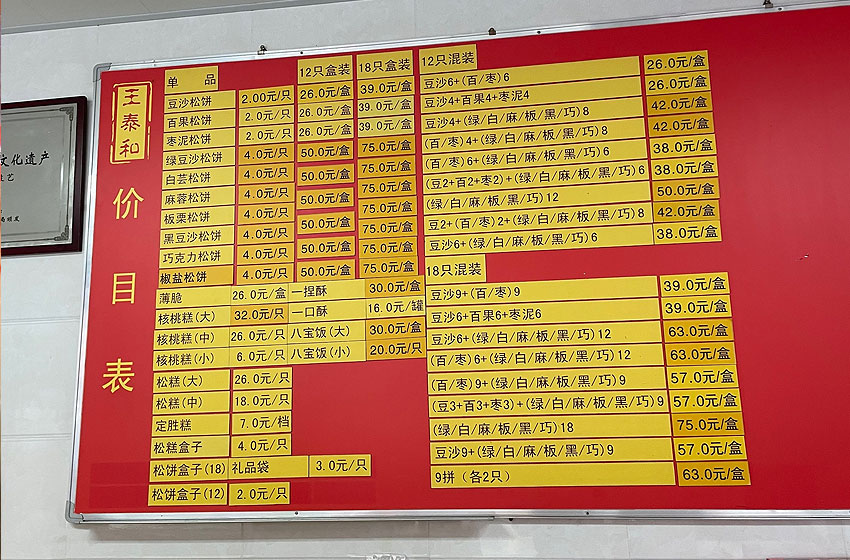 文化遗产
王泰和
价目表
单 品 12只盒装 18只盒装
豆沙松饼 2.00元/只 26.0元/盒 39.0元/盒
百果松饼 2.0元/只 26.0元/盒 39.0元/盒
枣泥松饼 2.0元/只 26.0元/盒 39.0元/盒
绿豆沙松饼 4.0元/只 50.0元/盒 75.0元/盒
白芸松饼 4.0元/只
麻蓉松饼 4.0元/只 50.0元/盒 75.0元/盒
板栗松饼 4.0元/只 50.0元/盒 75.0元/盒
黑豆沙松饼 4.0元/只 50.0元/盒 75.0元/盒
巧克力松饼 4.0元/只 50.0元/盒 75.0元/盒
椒盐松饼 4.0元/只 50.0元/盒 75.0元/盒
薄脆 26.0元/盒 一捏酥 30.0元/盒
核桃糕(大) 32.0元/只 一口酥 16.0元/罐
核桃糕(中) 26.0元/只 八宝饭(大) 30.0元/盒
核桃糕(小) 6.0元/只 八宝饭(小) 20.0元/只
松糕(大) 26.0元/只
松糕(中) 18.0元/只
定胜糕 7.0元/档
松糕盒子 4.0元/只
松饼盒子(18) 礼品袋 3.0元/只
松饼盒子(12) 2.0元/只
12只混装
豆沙6+(百/枣)6 26.0元/盒
豆沙4+百果4+枣泥4 26.0元/盒
豆沙4+(绿/白/麻/板/黑/巧)8 42.0元/盒
(百/枣)4+(绿/白/麻/板/黑/巧)8 42.0元/盒
(百/枣)6+(绿/白/麻/板/黑/巧)6 38.0元/盒
(豆2+百2+枣2)+(绿/白/麻/板/黑/巧)6 38.0元/盒
(绿/白/麻/板/黑/巧)12 50.0元/盒
豆2+(百/枣)2+(绿/白/麻/板/黑/巧)8 42.0元/盒
豆沙6+(绿/白/麻/板/黑/巧)6 38.0元/盒
18只混装
豆沙9+(百/枣)9 39.0元/盒
豆沙6+百果6+枣泥6 39.0元/盒
豆沙6+(绿/白/麻/板/黑/巧)12 63.0元/盒
(百/枣)6+(绿/白/麻/板/黑/巧)12 63.0元/盒
(百/枣)9+(绿/白/麻/板/黑/巧)9 57.0元/盒
(豆3+百3+枣3)+(绿/白/麻/板/黑/巧)9 57.0元/盒
(绿/白/麻/板/黑/巧)18 75.0元/盒
豆沙9+(绿/白/麻/板/黑/巧)9 57.0元/盒
9拼（各2只） 63.0元/盒